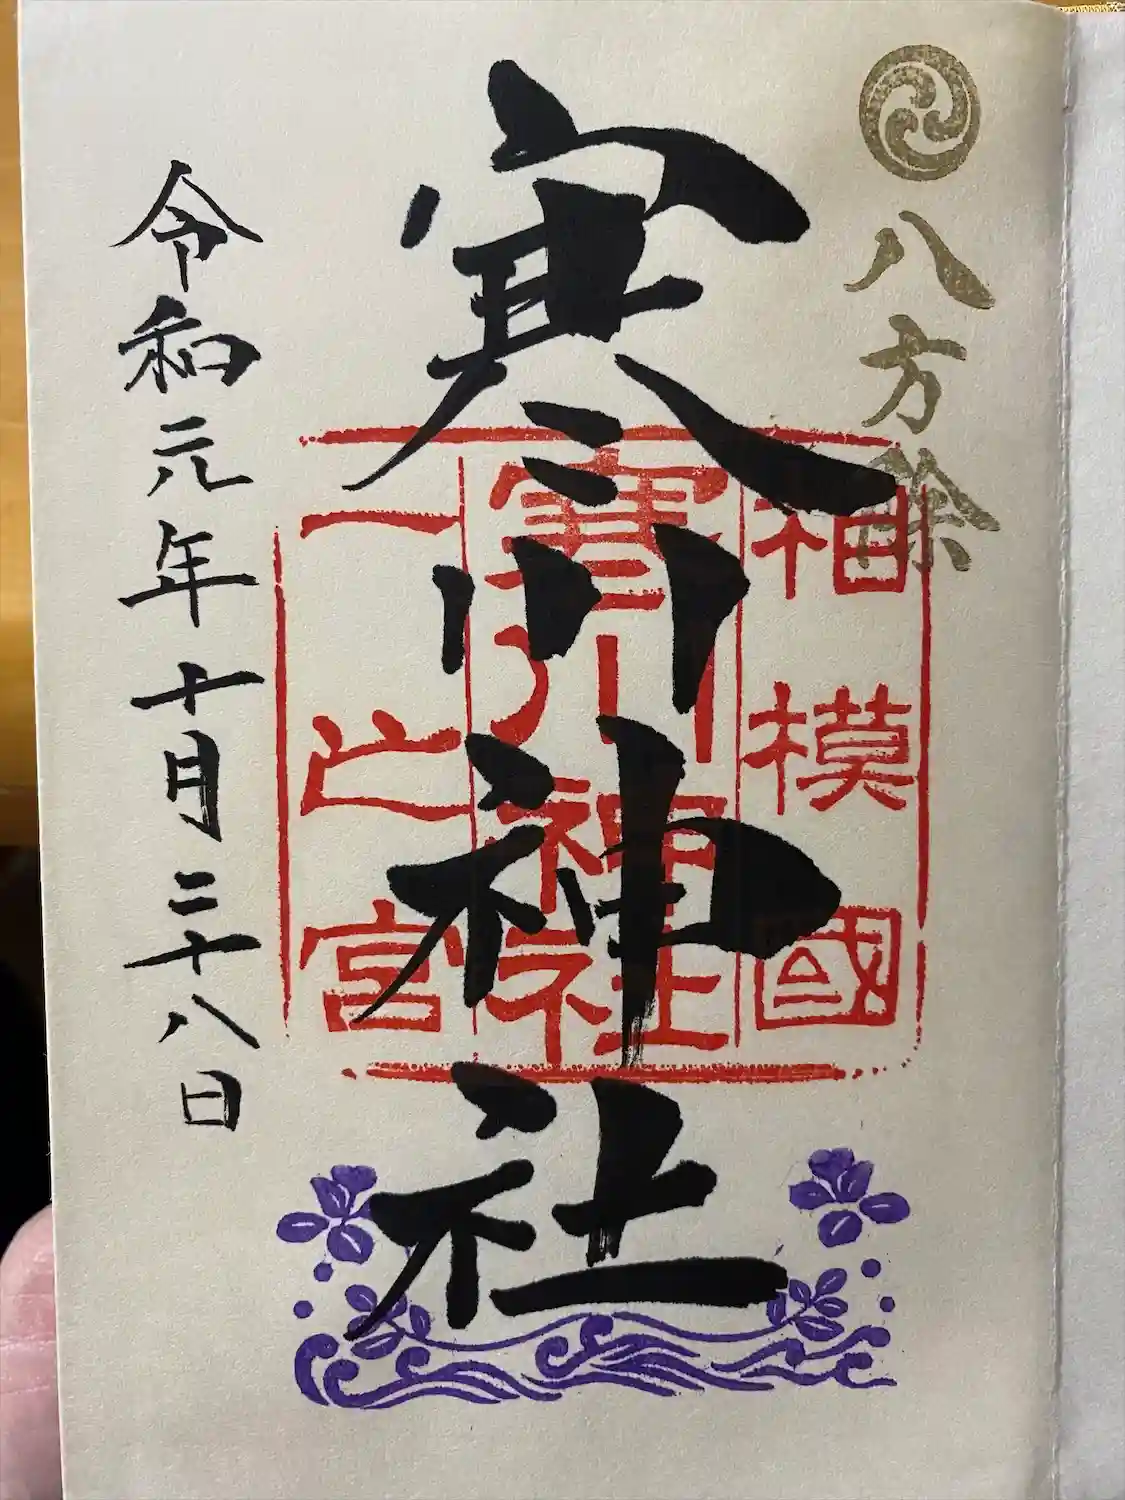 八方除
相模國
寒川神社
寒川神社
一之宮
令和元年十月二十八日